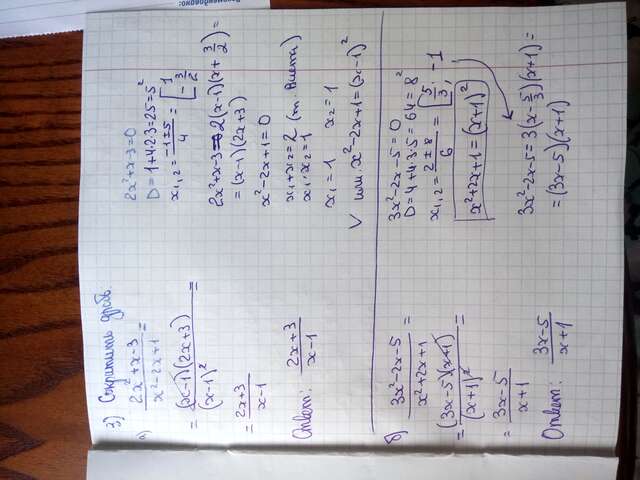 3) Сократить дробь.
а) (2x²+x-3)/(x²-2x+1) =
= ((x-1)(2x+3))/(x-1)² =
= (2x+3)/(x-1)
Ответ: (2x+3)/(x-1)
2x²+x-3=0
D=1+4·2·3=25=5²
x₁,₂ = (-1±5)/4 = [1; -3/2
2x²+x-3=2(x-1)(x+3/2)=
=(x-1)(2x+3)
x²-2x+1=0
x₁+x₂=2 (т. Виета)
x₁·x₂=1
x₁=1 x₂=1
V или x²-2x+1=(x-1)²
б) (3x²-2x-5)/(x²+2x+1) =
= ((3x-5)(x+1))/(x+1)² =
= (3x-5)/(x+1)
Ответ: (3x-5)/(x+1)
3x²-2x-5=0
D=4+4·3·5=64=8²
x₁,₂ = (2±8)/6 = [5/3; -1
x²+2x+1=(x+1)²
3x²-2x-5=3(x-5/3)(x+1)=
=(3x-5)(x+1)